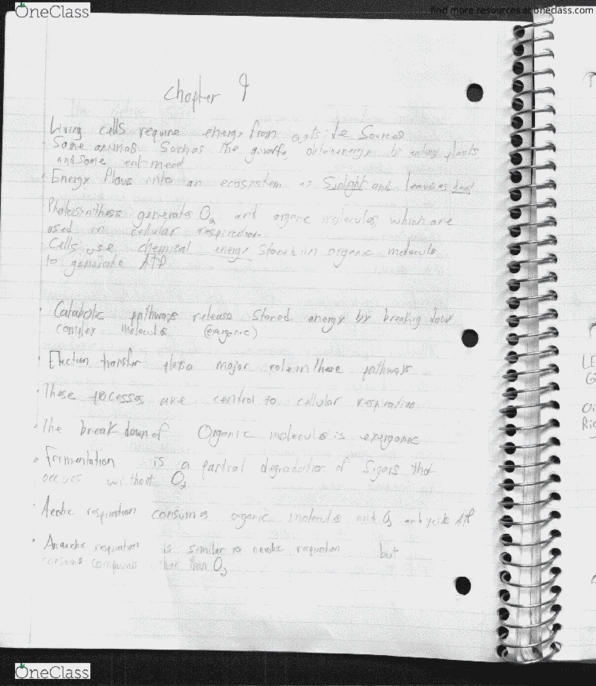 OneClass
find more resources at oneclass.com
Chapter 9
Living cells require energy from outside Sources
Some animas Such as the giraffe, obtain energy by eating plants
and some eat meed
Energy flows into an ecosystem as Sunlight and leaves as heat
Photosinthesis generates O2 and organic molecules, which are
used in cellular respiration
Cells use chemical energy Stored in organic molecule
to generate ATP
Catabolic pathways release stored energy by breaking down
complex molecules
Electron transfer plays a major role in these pathways
These processes are central to cellular respiration
The break down of Organic molecules is exergonic
Fermentation is a partial degradation of Sugars that
occurs without O2
Aerobic respiration consumes organic molecules and O2 and yields ATP
Anaerobic respiration is similar to aerobic respiration but
consumes compounds other than O2
OneClass